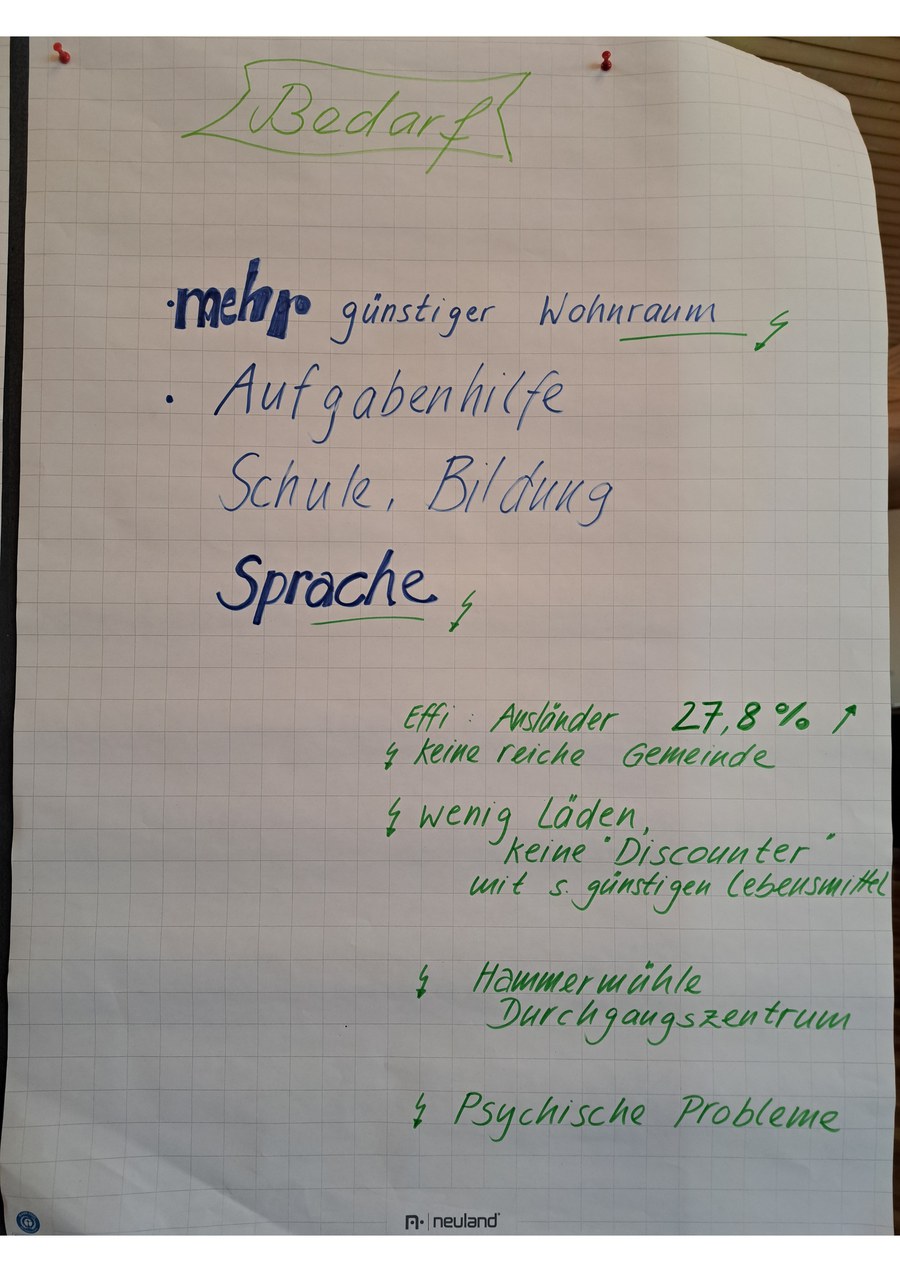 Bedarf
· mehr günstiger Wohnraum
· Aufgabenhilfe
Schule, Bildung
Sprache
Effi : Ausländer 27,8 % ↑
keine reiche Gemeinde
wenig Läden,
keine "Discounter"
mit s. günstigen Lebensmittel
Hammermühle
Durchgangszentrum
Psychische Probleme
neuland